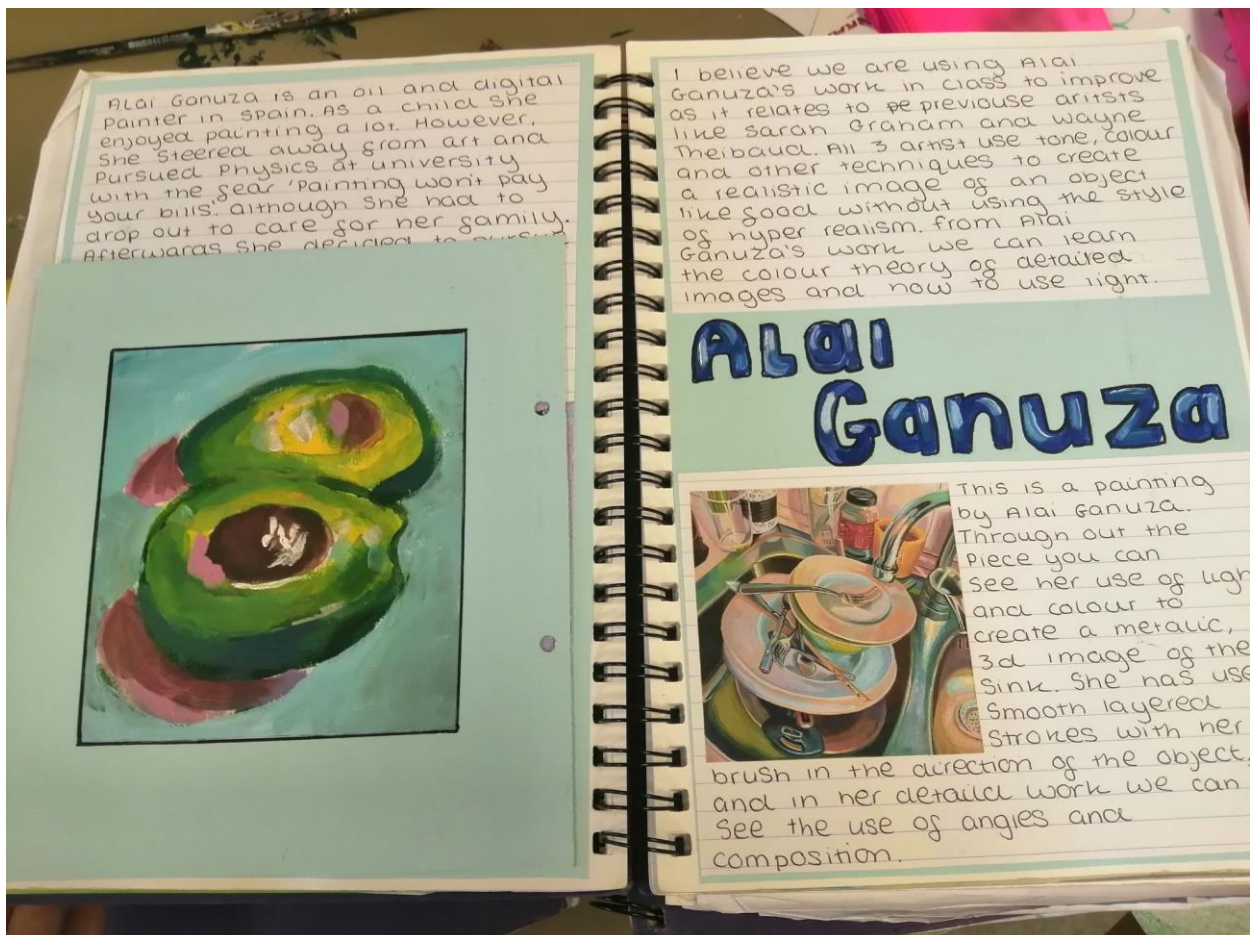 Alai Ganuza is an oil and digital
Painter in Spain. As a child she
enjoyed painting a lot. However,
She Steered away from art and
Pursued Physics at university
with the fear 'Painting won't pay
your bills'. although she had to
drop out to care for her family.
Afterwards she decided to pursue
I believe we are using Alai
Ganuza's work in class to improve
as it relates to pe previouse aritsts
like Sarah Graham and Wayne
Theibaud. All 3 artist use tone, colour
and other techniques to create
a realistic image of an object
like food without using the style
of hyper realism. from Alai
Ganuza's work we can learn
the colour theory of detailed
images and how to use light.
Alai
Ganuza
This is a painting
by Alai Ganuza.
Through out the
Piece you can
See her use of ligh
and colour to
create a metalic,
3d image of the
Sink. She has use
Smooth layered
Strokes with her
brush in the direction of the object,
and in her detaild work we can
See the use of angles and
composition.